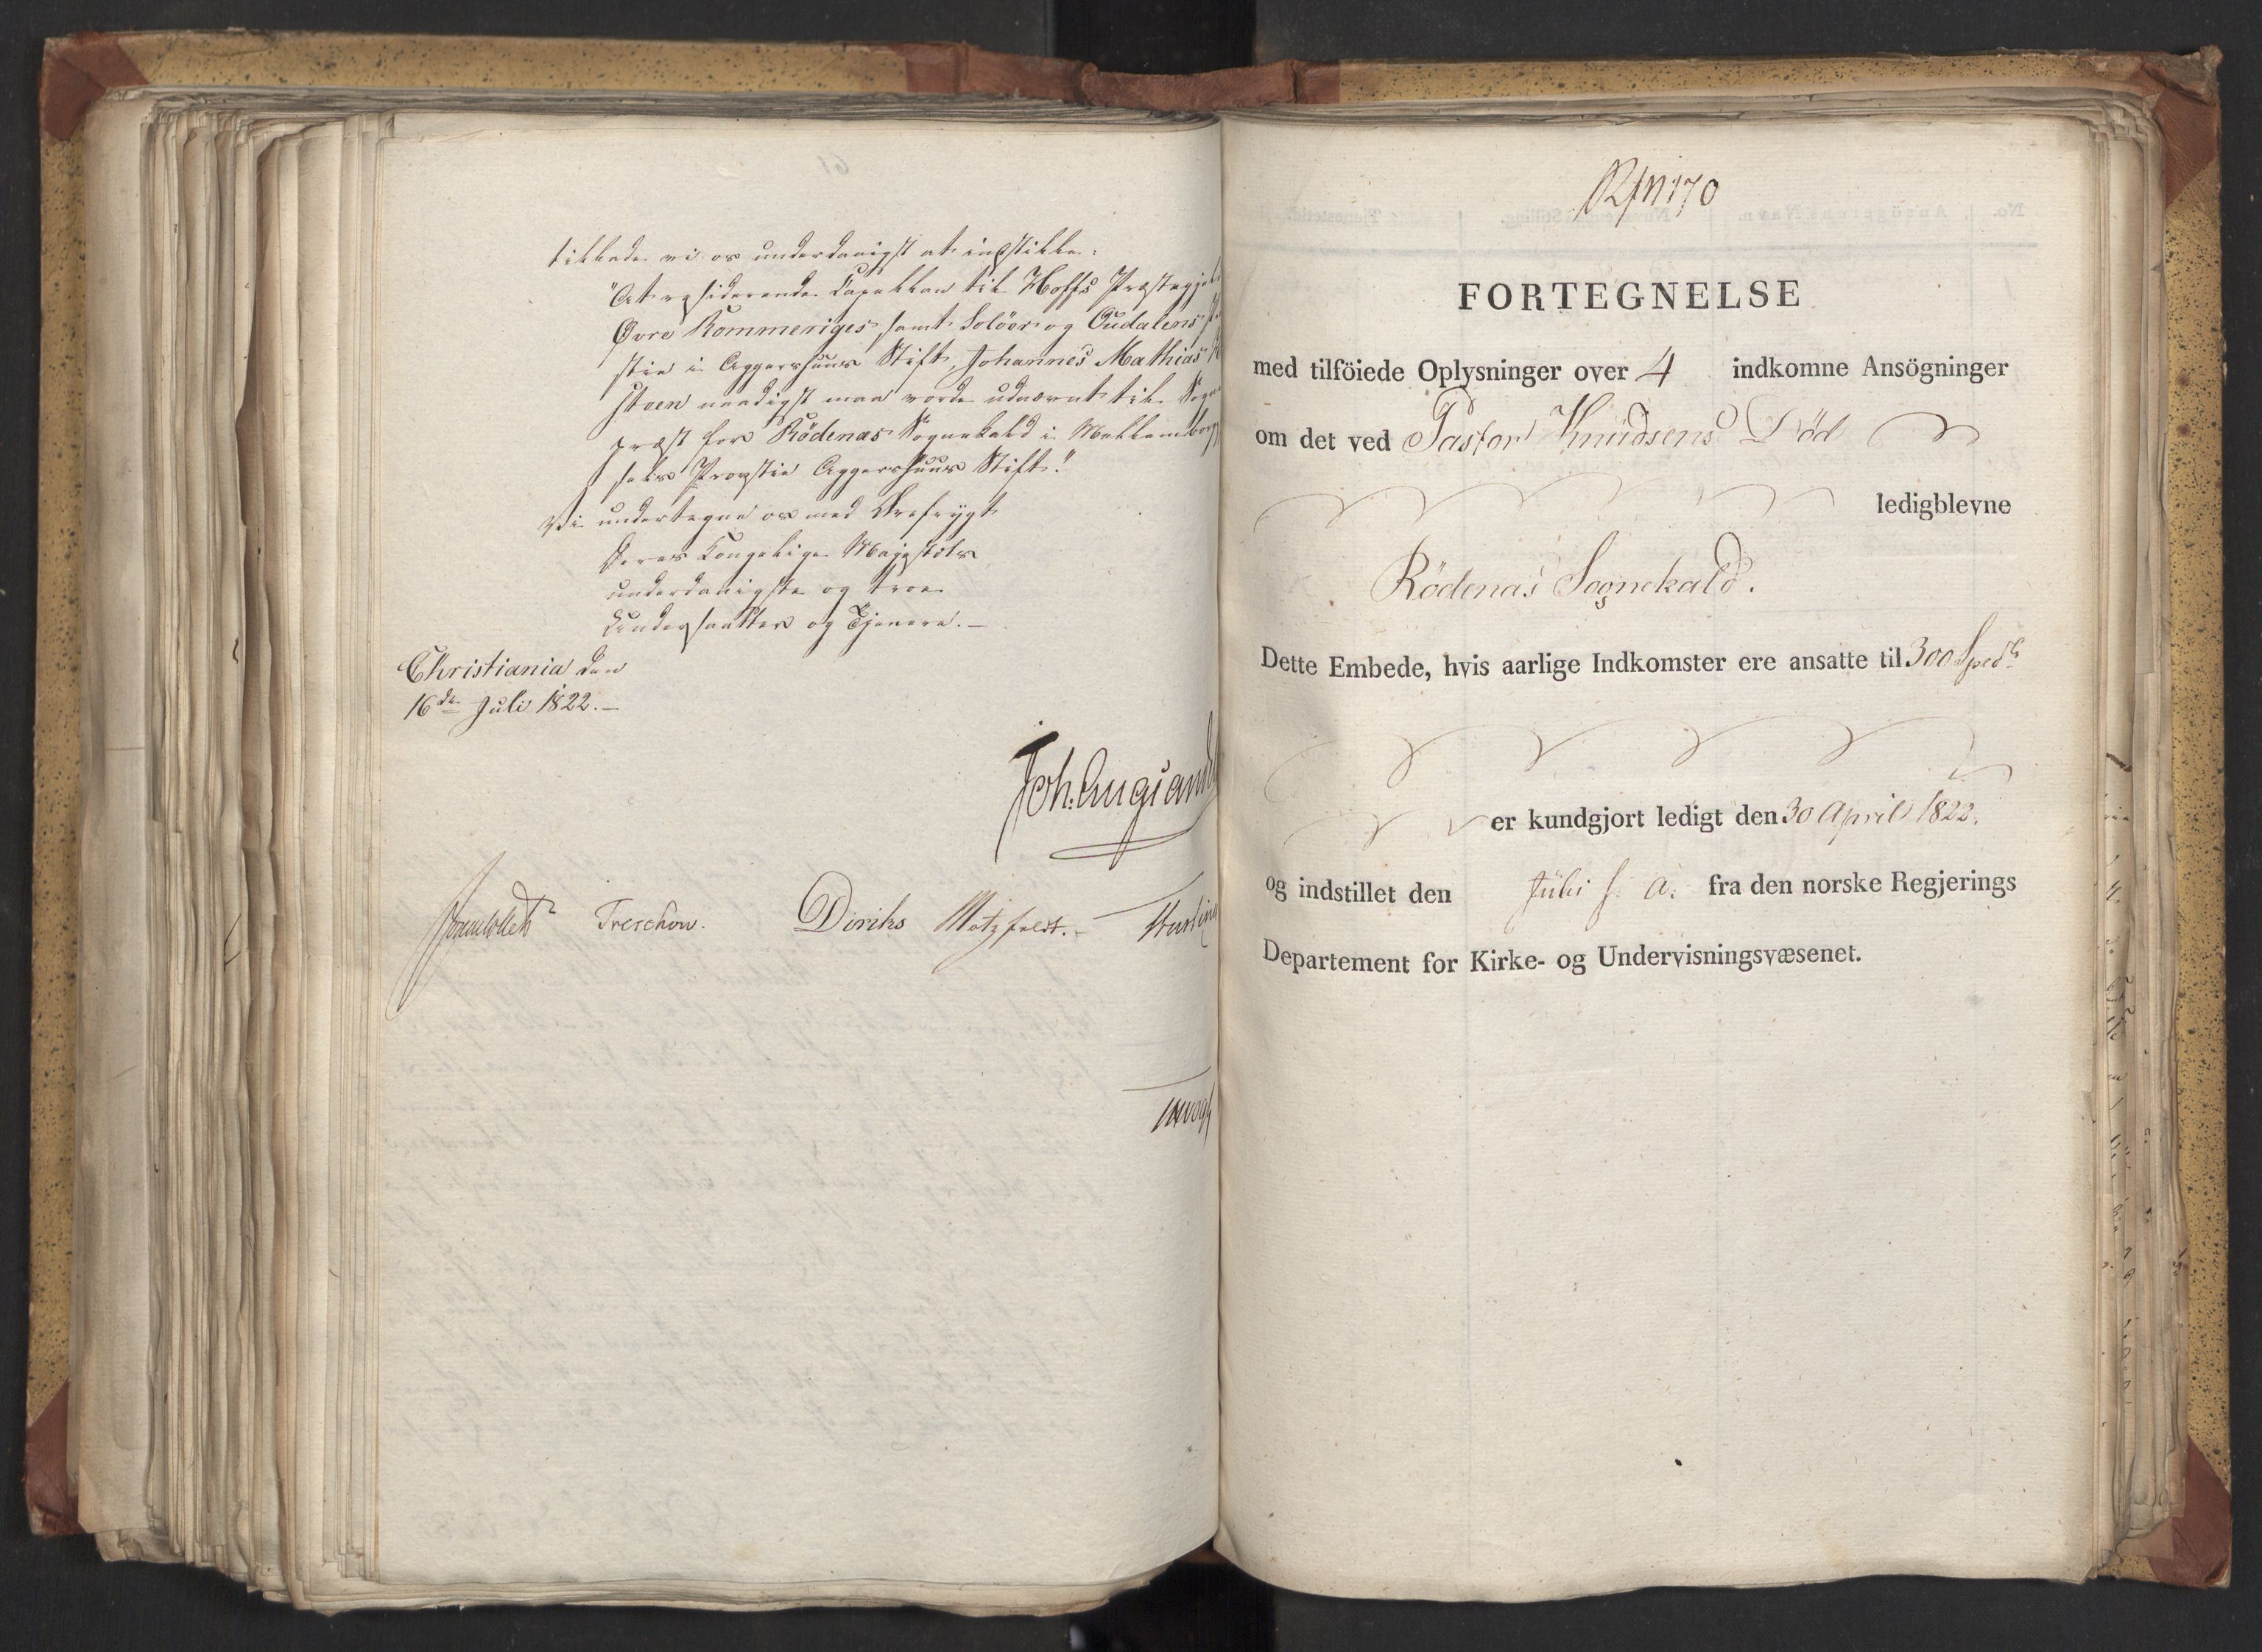 tillade vi os underdanigst at indstille:
"At residerende Capellan til Hoffs Præstegjeld
Øvre Rommeriges samt Solöer og Oudalens
stie i Aggershuus Stift, Johannes Mathias
Steen naadigst maa vorde udnævnt til Sogne
præst for Rödenæs Sognekald i Mellemborge
sels Provstie Aggershuus Stift."
Vi undertegne os med Ærefrygt
Deres Kongelige Majestæts
underdanigste og troe
Undersaatter og Tjenere. —
Christiania den
16de Juli 1822. —
Treschow. Diriks Motzfeldt. —
No. Ansögerens Navn. Tjenestetid.
RfN 170
FORTEGNELSE
med tilföiede Oplysninger over 4 indkomne Ansögninger
om det ved Pastor Knudsens Död
ledigblevne
Rödenæs Sognekald.
Dette Embede, hvis aarlige Indkomster ere ansatte til 300 Spd
er kundgjort ledigt den 30 April 1822.
og indstillet den Juli s. a. fra den norske Regjerings
Departement for Kirke- og Undervisningsvæsenet.